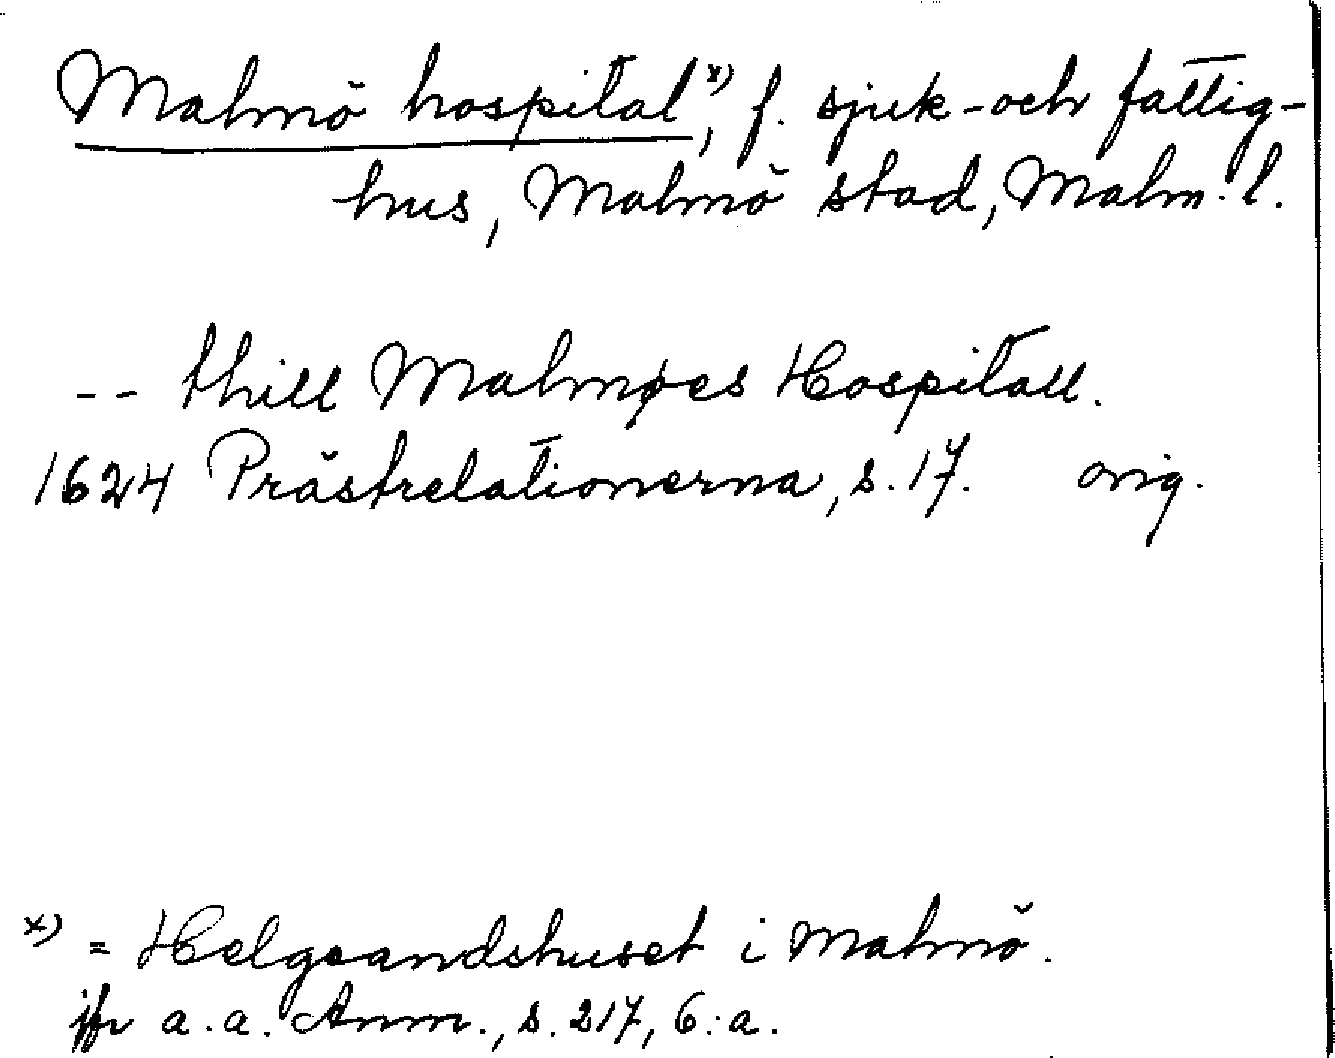 Malmö hospital,x) f. sjuk- och fattig-
hus, Malmö stad, Malm. l.
-- thill Malmøes Hospitall.
1624 Prästrelationerna, s. 17. orig.
x) = Helgeandshuset i Malmö.
jfr a.a. Anm., s. 217, 6:a.